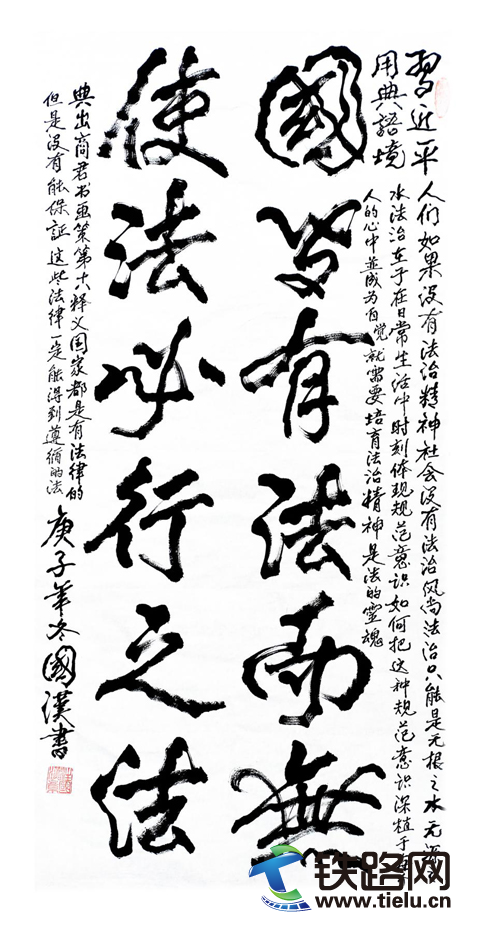 習近平
用典語境
人们如果没有法治精神社会没有法治风尚法治只能是无根之水无源
水法治在于在日常生活中时刻体现规范意识如何把这种规范意识深植于
人的心中並成为自觉就需要培育法治精神是法的靈魂
國皆有法而無
使法必行之法
典出商君书画策第十八释义国家都是有法律的
但是没有能保証这些法律一定能得到遵循的法
庚子年冬國漢書
铁路网
www.tielu.cn